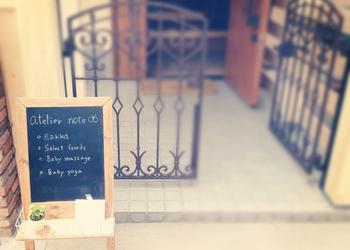 atelier note 06
Select Goods
Baby massage
Baby yoga